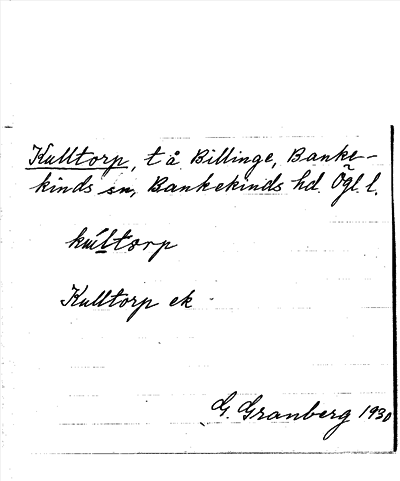 Kulltorp, t å Billinge, Banke-
kinds sn, Bankekinds hd. Ögl. l.
kúltorp
Kulltorp ek
G. Granberg 1930